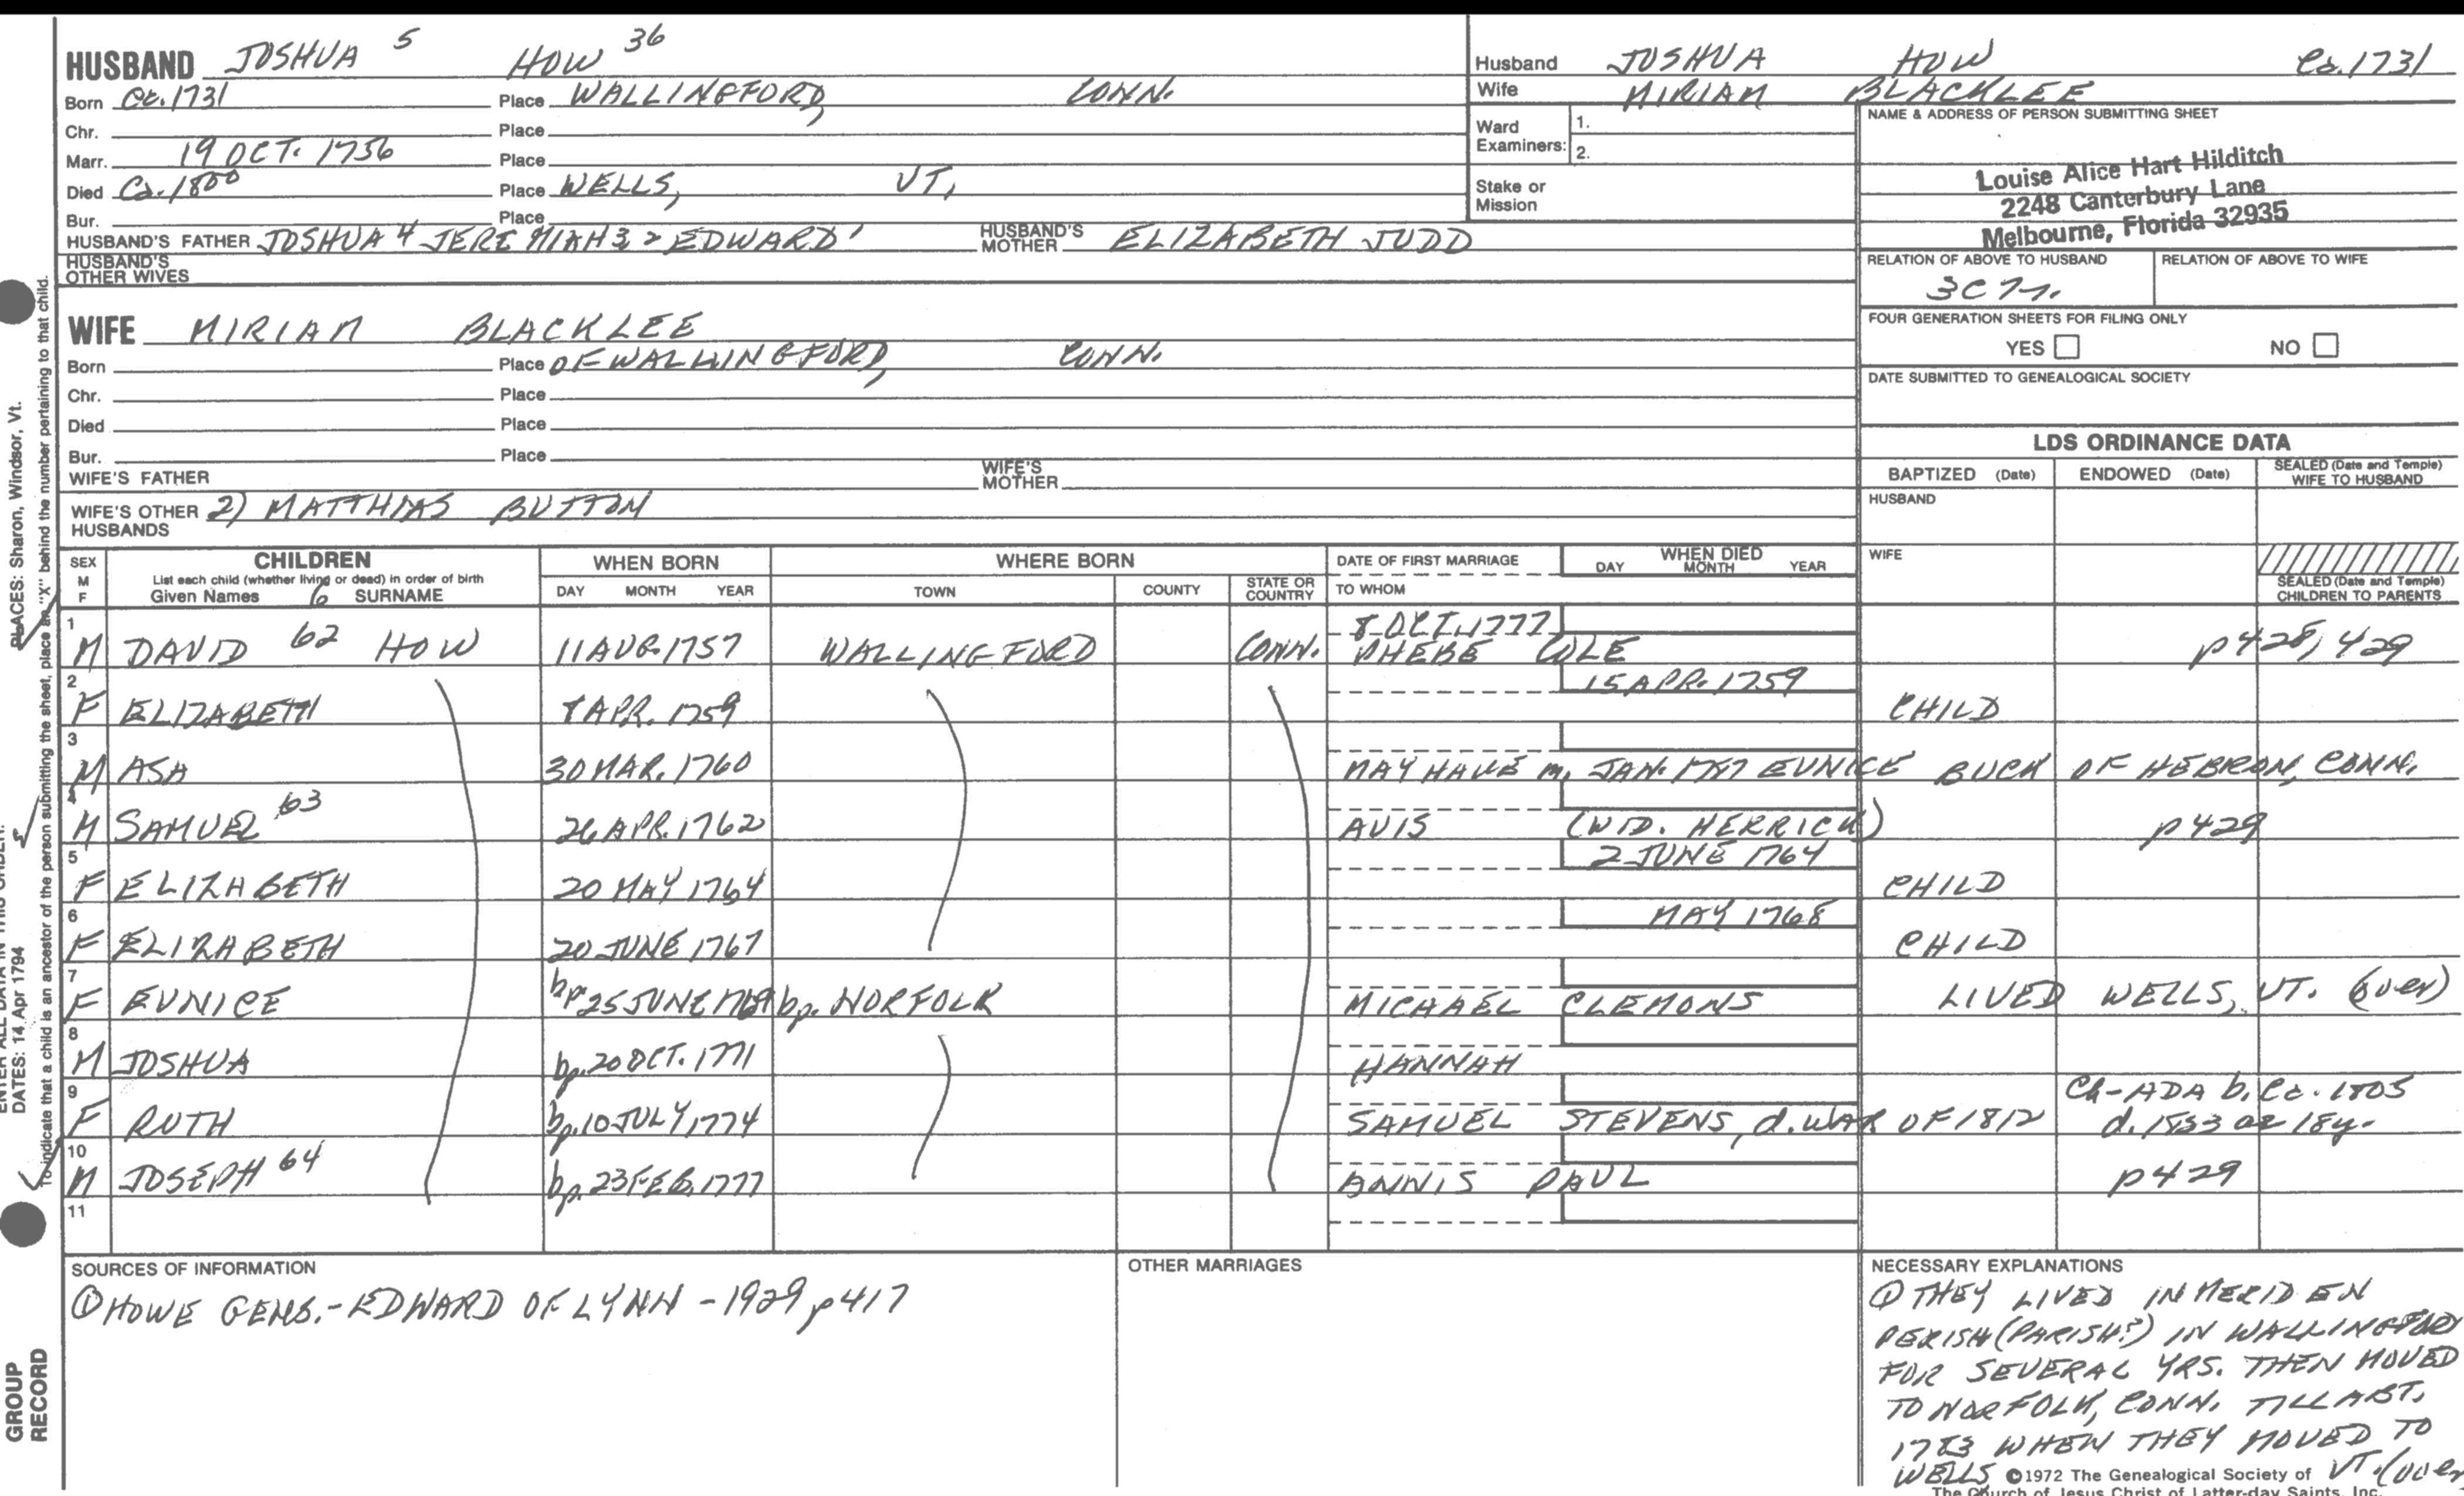 HUSBAND JOSHUA 5 HOW 36
Born Ca. 1731 Place WALLINGFORD, CONN.
Chr. Place
Marr. 19 OCT. 1756 Place
Died Ca. 1800 Place WELLS, VT.
Bur. Place
HUSBAND'S FATHER JOSHUA 4 JEREMIAH 3 2 EDWARD 1 HUSBAND'S MOTHER ELIZABETH JUDD
HUSBAND'S OTHER WIVES
Husband JOSHUA HOW Ca. 1731
Wife MIRIAM BLACKLEE
Ward Examiners: 1.
2.
Stake or Mission
NAME & ADDRESS OF PERSON SUBMITTING SHEET
Louise Alice Hart Hilditch
2248 Canterbury Lane
Melbourne, Florida 32935
RELATION OF ABOVE TO HUSBAND RELATION OF ABOVE TO WIFE
FOUR GENERATION SHEETS FOR FILING ONLY
YES NO
DATE SUBMITTED TO GENEALOGICAL SOCIETY
WIFE MIRIAM BLACKLEE
Born Place OF WALLINGFORD, CONN.
Chr. Place
Died Place
Bur. Place
WIFE'S FATHER WIFE'S MOTHER
WIFE'S OTHER HUSBANDS 2) MATTHIAS BUTTON
LDS ORDINANCE DATA
BAPTIZED (Date) ENDOWED (Date) SEALED (Date and Temple) WIFE TO HUSBAND
HUSBAND
WIFE
SEALED (Date and Temple) CHILDREN TO PARENTS
SEX M F CHILDREN List each child (whether living or dead) in order of birth Given Names 6 SURNAME
WHEN BORN DAY MONTH YEAR
WHERE BORN TOWN COUNTY STATE OR COUNTRY
DATE OF FIRST MARRIAGE TO WHOM
WHEN DIED DAY MONTH YEAR
8 OCT. 1777
1 M DAVID 62 HOW 11 AUG. 1757 WALLINGFORD CONN. PHEBE COLE p428, 429
15 APR. 1759
2 F ELIZABETH 8 APR. 1759 CHILD
3 M ASA 30 MAR. 1760 MAY HAVE m. JAN. 1787 EUNICE BUCK OF HEBRON, CONN.
4 M SAMUEL 63 26 APR. 1762 AVIS (WID. HERRICK) p429
2 JUNE 1764
5 F ELIZABETH 20 MAY 1764 CHILD
MAY 1768
6 F ELIZABETH 20 JUNE 1767 CHILD
7 F EUNICE bp. 25 JUNE 1769 bp. NORFOLK MICHAEL CLEMONS LIVED WELLS, VT. (over)
8 M JOSHUA bp. 20 OCT. 1771 HANNAH
Ch-ADA b. Ca. 1805
9 F RUTH bp. 10 JULY, 1774 SAMUEL STEVENS, d. WAR OF 1812 d. 1833 ae 18y.
10 M JOSEPH 64 bp. 23 FEB. 1777 ANNIS PAUL p429
11
SOURCES OF INFORMATION
① HOWE GENS. - EDWARD OF LYNN - 1929 p417
OTHER MARRIAGES
NECESSARY EXPLANATIONS
① THEY LIVED IN MERIDEN
PERISH (PARISH?) IN WALLINGFORD
FOR SEVERAL YRS. THEN MOVED
TO NORFOLK, CONN. TILL ABT.
1783 WHEN THEY MOVED TO
WELLS VT. (over
©1972 The Genealogical Society of
The Church of Jesus Christ of Latter-day Saints, Inc.
PLACES: Sharon, Windsor, Vt.
To indicate that a child is an ancestor of the person submitting the sheet, place an "X" behind the number pertaining to that child.
DATES: 14 Apr 1794
GROUP
RECORD